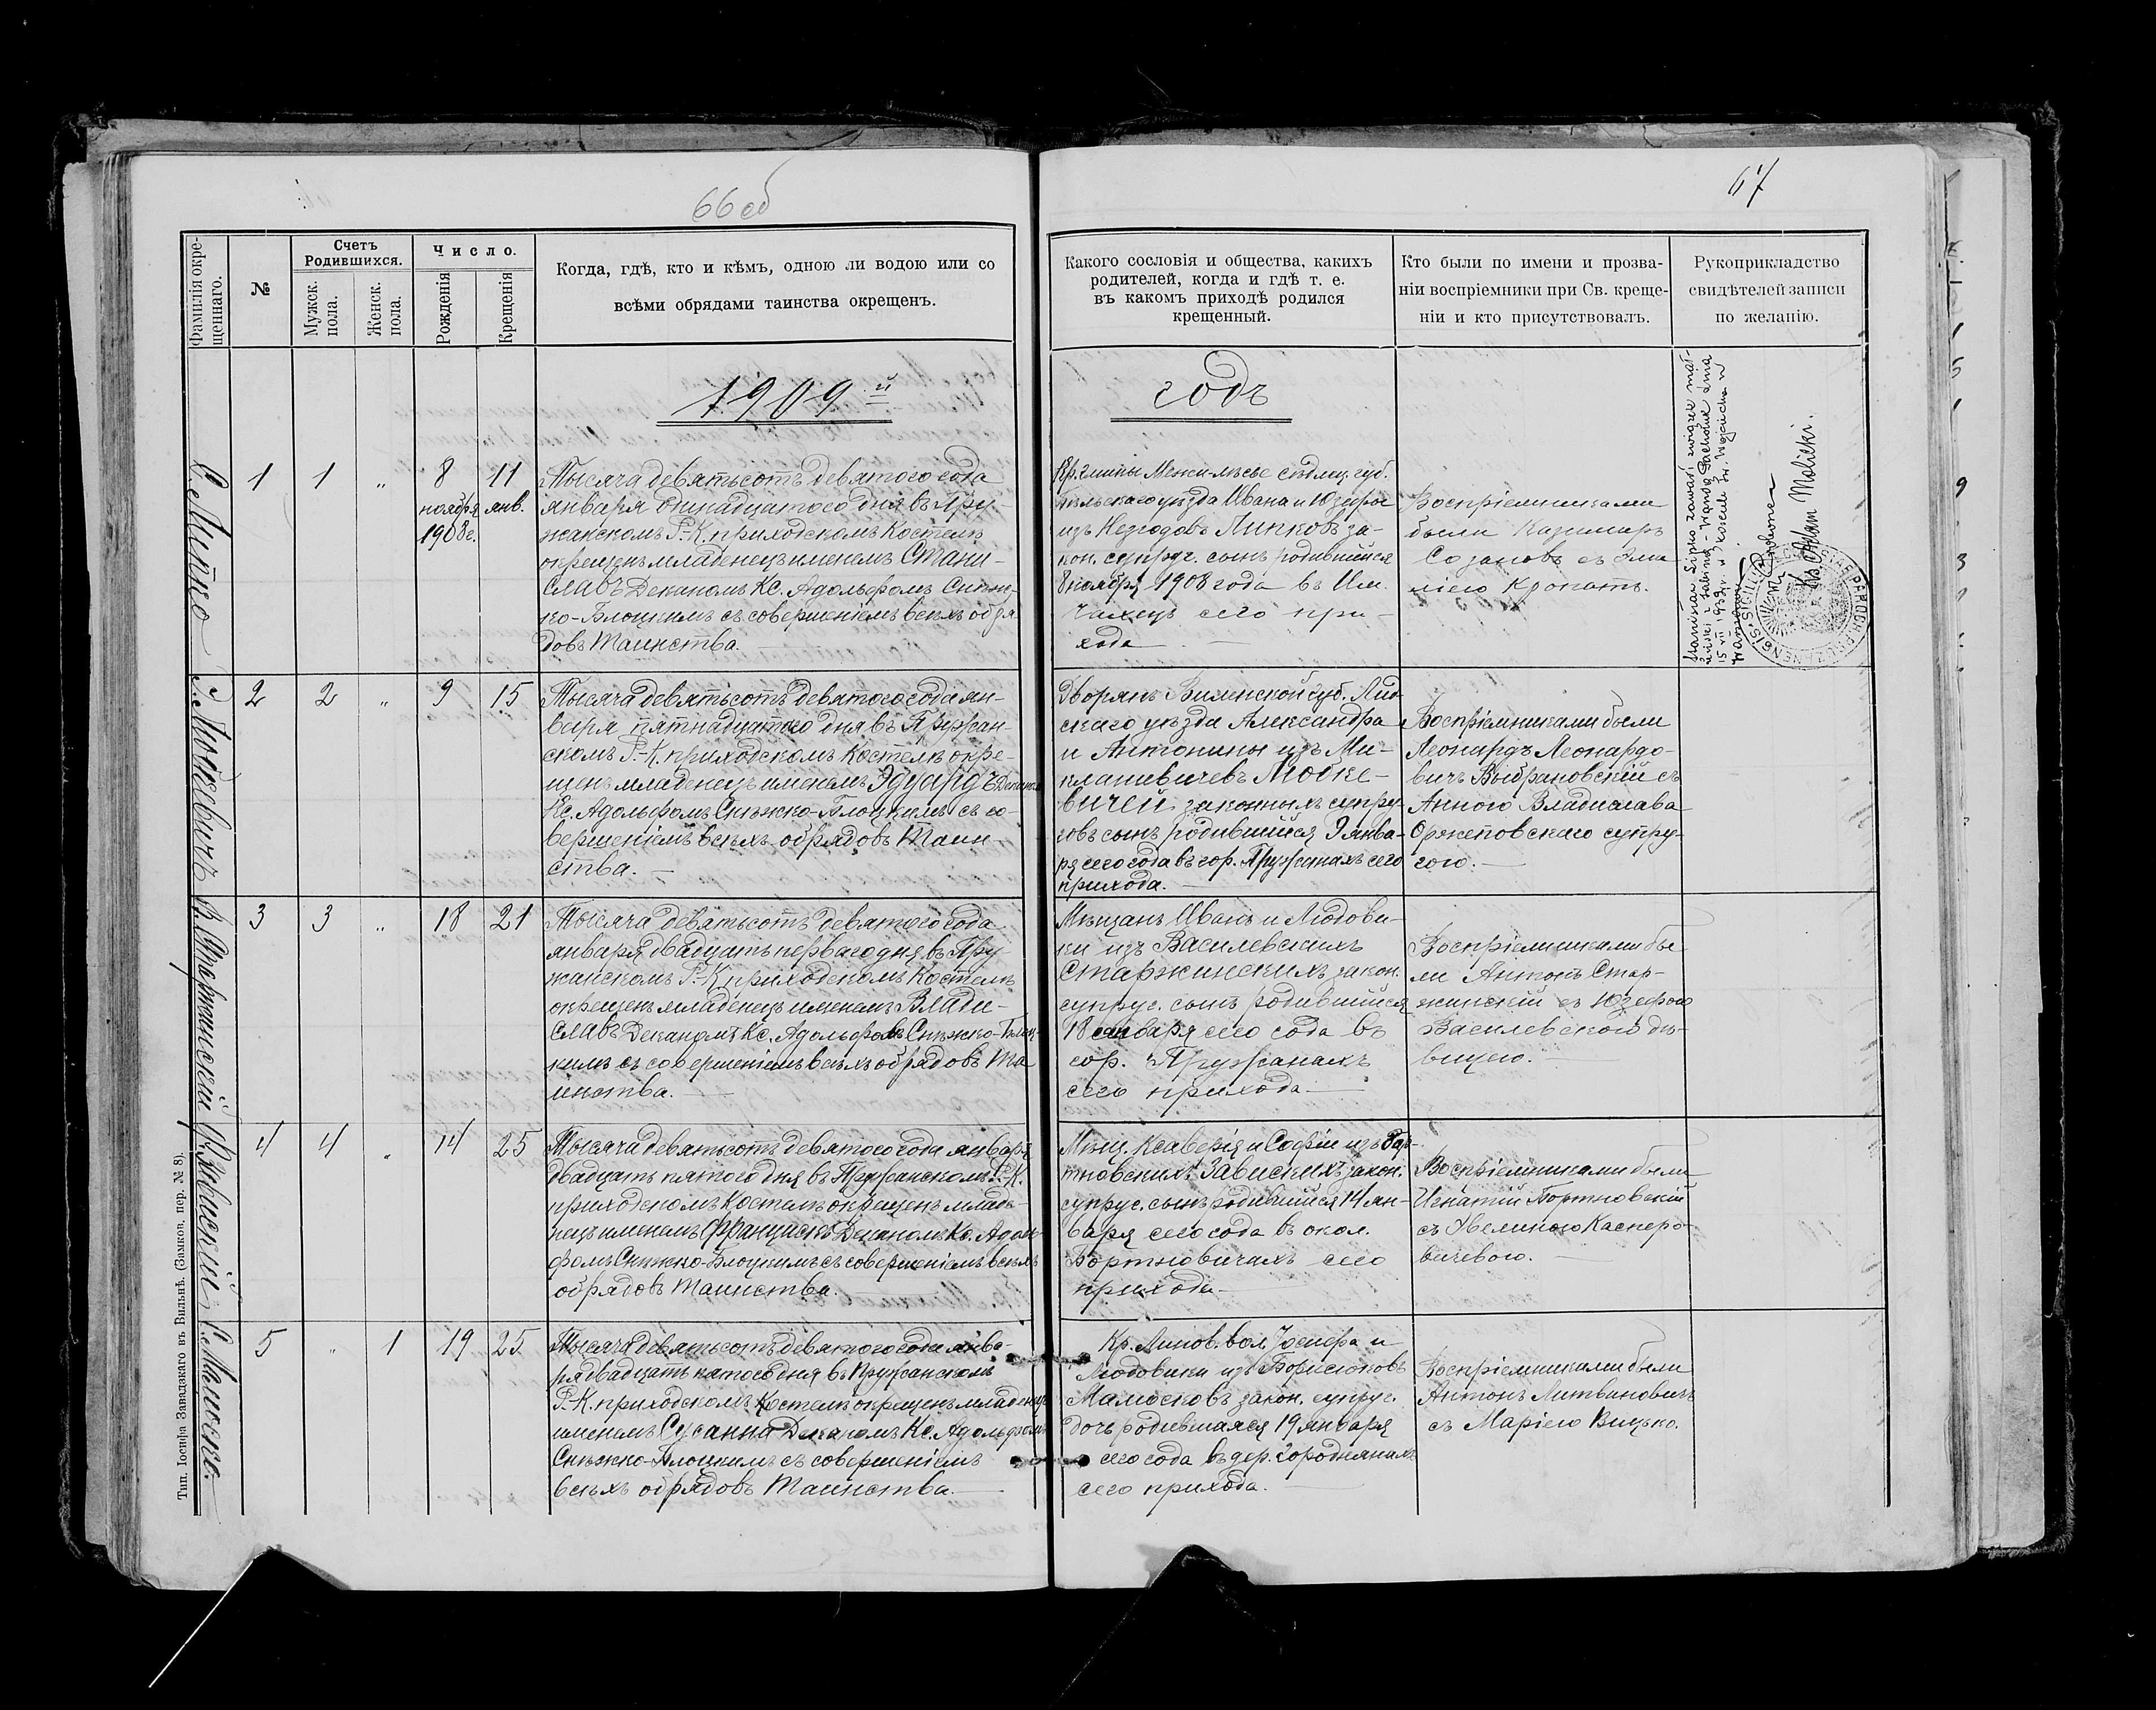 66 об
67
Фамилія окре-
щеннаго.
№
Счетъ
Родившихся.
Мужск.
пола.
Женск.
пола.
Число.
Рожденія
Крещенія
Когда, гдѣ, кто и кѣмъ, одною ли водою или со
всѣми обрядами таинства окрещенъ.
Какого сословія и общества, какихъ
родителей, когда и гдѣ т. е.
въ какомъ приходѣ родился
крещенный.
Кто были по имени и прозва-
ніи воспріемники при Св. креще-
ніи и кто присутствовалъ.
Рукоприкладство
свидѣтелей записи
по желанію.
1909й
годъ
С. Липко
1
1
"
8
ноября
1908г.
11
янв.
Тысяча девятьсотъ девятого года
января одинадцатого дня въ Пру-
жанскомъ Р.-К. приходскомъ Костелѣ
окрещенъ младенецъ именемъ Стани-
славъ Деканомъ Кс. Адольфомъ Снѣж-
ко-Блоцкимъ съ совершеніемъ всѣхъ обря
довъ Таинства.
Кр. гмины Межилѣсье сѣдлец. губ.
бѣльскаго уѣзда Ивана и Юзефы
изъ Незгодовъ Липковъ за-
кон. супруг. сынъ родившійся
8 ноября 1908 года въ Им.
сего при-
хода
Воспріемниками
были Казимиръ
Созановъ съ Эми
ліею Кропать.
15 VII 1932 r. w kościele Św. Wojciecha w
Warszawie
Ks. Adam Molicki.
Э. Мойкевичъ
2
2
"
9
15
Тысяча девятьсотъ девятого года ян-
варя пятнадцатого дня въ Пружан-
скомъ Р.-К. приходскомъ Костелѣ окре-
щенъ младенецъ именемъ Эдуардъ Деканом
Кс. Адольфомъ Снѣжко-Блоцкимъ съ со-
вершеніемъ всѣхъ обрядовъ Таин
ства.
Дворянъ Виленской губ. Лид
скаго уѣзда Александра
и Антонины изъ Ми-
клашевичевъ Мойке-
вичей законныхъ супру-
говъ сынъ родившійся 9 янва-
ря сего года въ гор. Пружанахъ сего
прихода.
Воспріемниками были
Леонардъ Леонардо-
вичъ Выбрановскій съ
Анною Владислава
Оржеповскаго супру-
гою.
В. Старжинскій
3
3
"
18
21
Тысяча девятьсотъ девятого года
января двадцать перваго дня въ Пру
жанскомъ Р.-К приходскомъ Костелѣ
окрещенъ младенецъ именемъ Влади-
славъ Деканомъ Кс. Адольфомъ Снѣжко-Блоц-
кимъ съ совершеніемъ всѣхъ обрядовъ Та
инства.
Мѣщанъ Ивана и Людови-
ки изъ Василевскихъ
Старжинскихъ закон.
супруг. сынъ родившійся
18 января сего года въ
гор. Пружанахъ
сего прихода
Воспріемниками бы
ли Антонъ Стар-
жинскій съ Юзефою
Василевскою дѣ-
вицею.
Ф. Зависскій
4
4
"
14
25
Тысяча девятьсотъ девятого года января
двадцать пятого дня въ Пружанскомъ Р.-К.
приходскомъ Костелѣ окрещенъ младе-
нецъ именемъ Францискъ Деканомъ Кс. Адоль-
фомъ Снѣжко-Блоцкимъ съ совершеніемъ всѣхъ
обрядовъ Таинства.
Мѣщ. Ксаверія и Софіи изъ Бор-
тновскихъ Зависскихъ закон.
супруг. сынъ родившійся 14 ян-
варя сего года въ окол.
Бортновичахъ сего
прихода
Воспріемниками были
Игнатій Бортновскій
съ Эвелиною Касперо-
вичевою.
С. Мамоско.
5
"
1
19
25
Тысяча девятьсотъ девятого года янва-
ря двадцать пятого дня въ Пружанскомъ
Р.-К. приходскомъ Костелѣ окрещенъ младенец
именемъ Сусанна Деканомъ Кс. Адольфомъ
Снѣжко-Блоцкимъ съ совершеніемъ
всѣхъ обрядовъ Таинства.
Кр. Линов. вол. Іосифа и
Людовики изъ Борисюковъ
Мамосковъ закон. супруг.
дочь родившаяся 19 января
сего года въ дер. Городнянахъ
сего прихода.
Воспріемниками были
Антонъ Литвиновичъ
съ Маріею Вицько.
Тип. Іосифа Завадзкаго въ Вильнѣ. (Замков. пер. № 8).